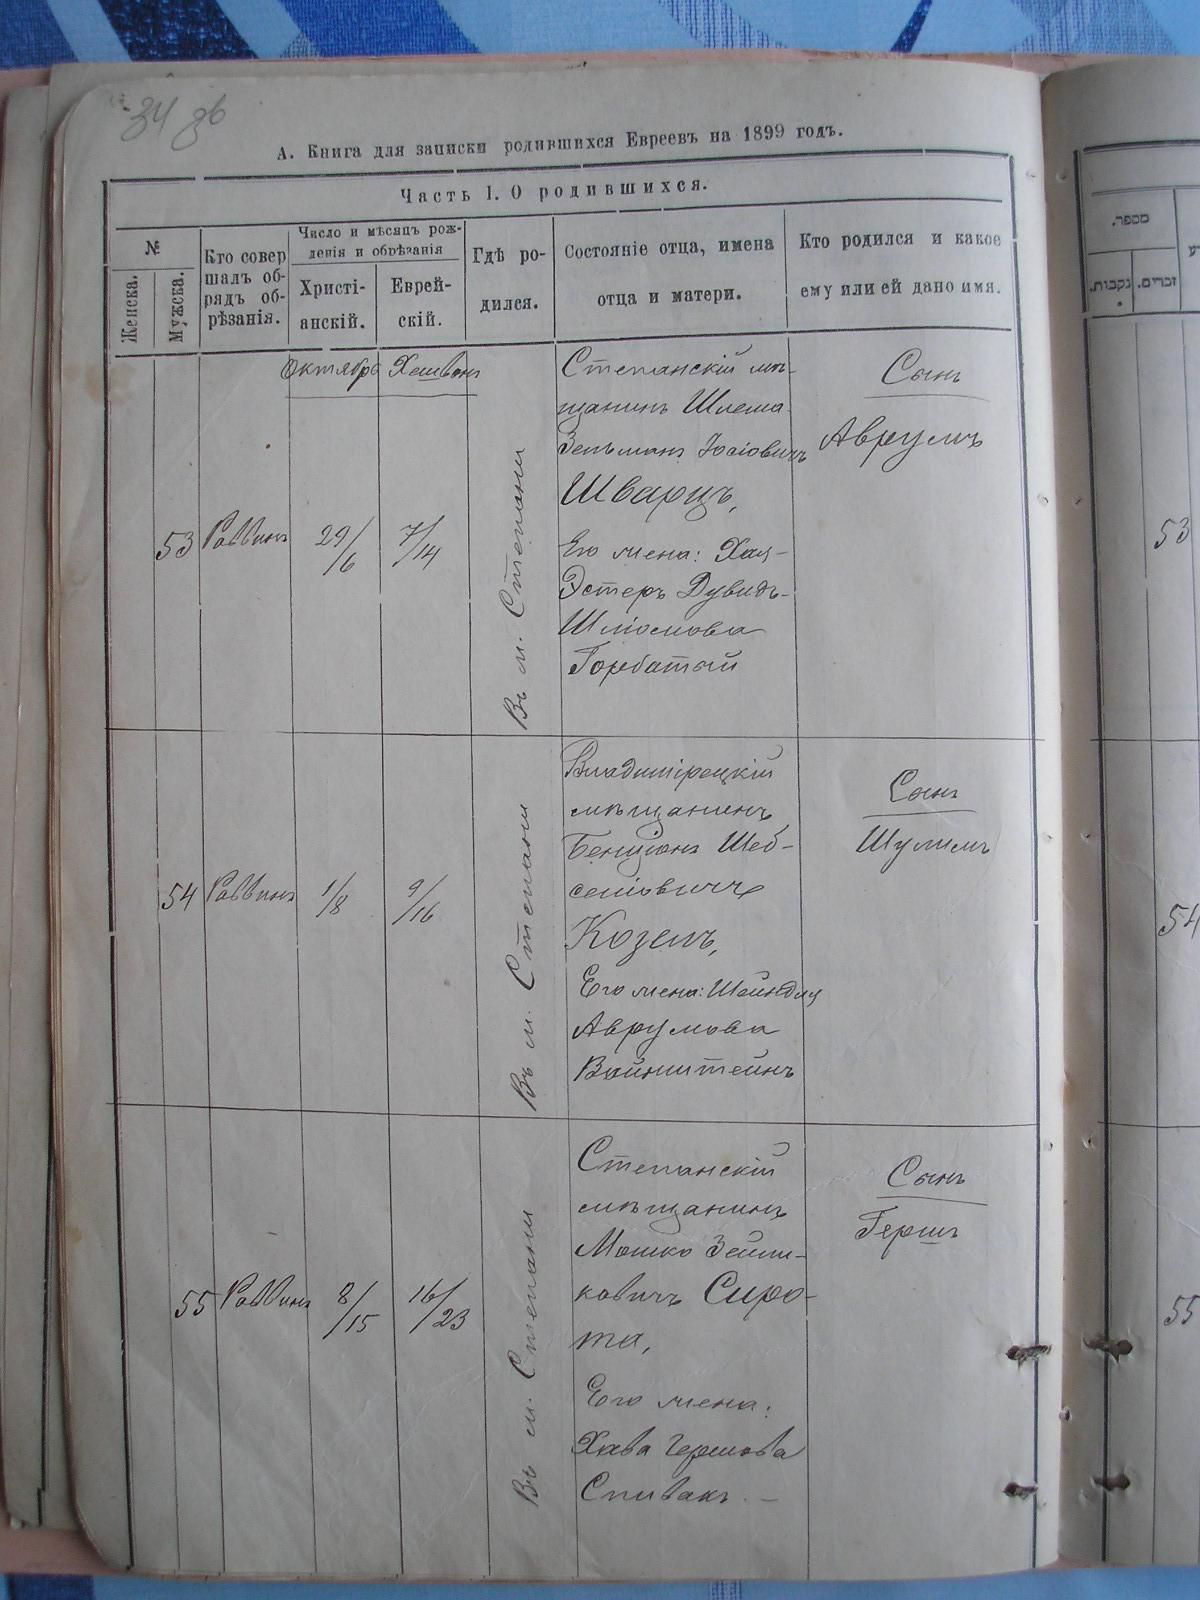 34 зв
А. Книга для записки родившихся Евреевъ на 1899 годъ.
Часть I. О родившихся.
№
Женска.
Мужска.
Кто совер
шалъ об-
рядъ об-
рѣзанія.
Число и мѣсяцъ рож-
денія и обрѣзанія
Христі-
анскій.
Еврей-
скій.
Гдѣ ро-
дился.
Состояніе отца, имена
отца и матери.
Кто родился и какое
ему или ей дано имя.
Октябрь Хешвонъ
53
Раввинъ
29/6
7/14
Въ м. Степани
Степанскій мѣ-
щанинъ Шлема
Зельманъ Іосіовичъ
Шварцъ,
Его жена: Хая-
Эстеръ Дувидъ-
Шліомова
Горбатый
Сынъ
Аврумъ
54
Раввинъ
1/8
9/16
Въ м. Степани
Владимірецкій
мѣщанинъ
Бенціонъ Шеб-
селіовичъ
Козелъ,
Его жена: Шейндля
Аврумова
Вайнштейнъ
Сынъ
Шулимъ
55
Раввинъ
8/15
16/23
Въ м. Степани
Степанскій
мѣщанинъ
Мошко Зейли-
ковичъ Сиро-
та,
Его жена:
Хава Гершова
Спивакъ. —
Сынъ
Гершъ
מספר.
נקבות.
זכרים.
53
54
55